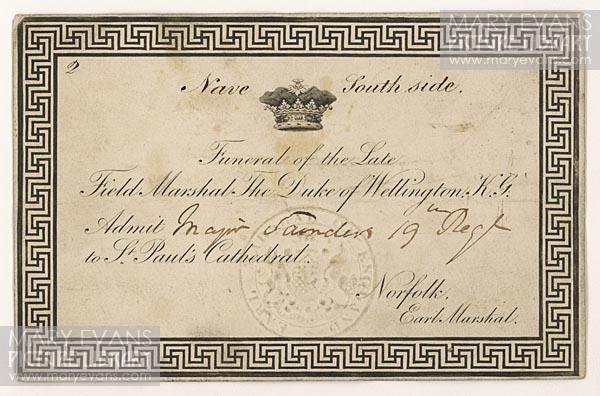 MARY EVANS
PICTURE LIBRARY
www.maryevans.com
2
Nave South side.
Funeral of the Late
Field Marshal The Duke of Wellington, K.G.
Admit Major Saunders 19th Regt
to St. Paul's Cathedral.
Norfolk.
Earl Marshal.
MARY EVANS
www.maryevans.com